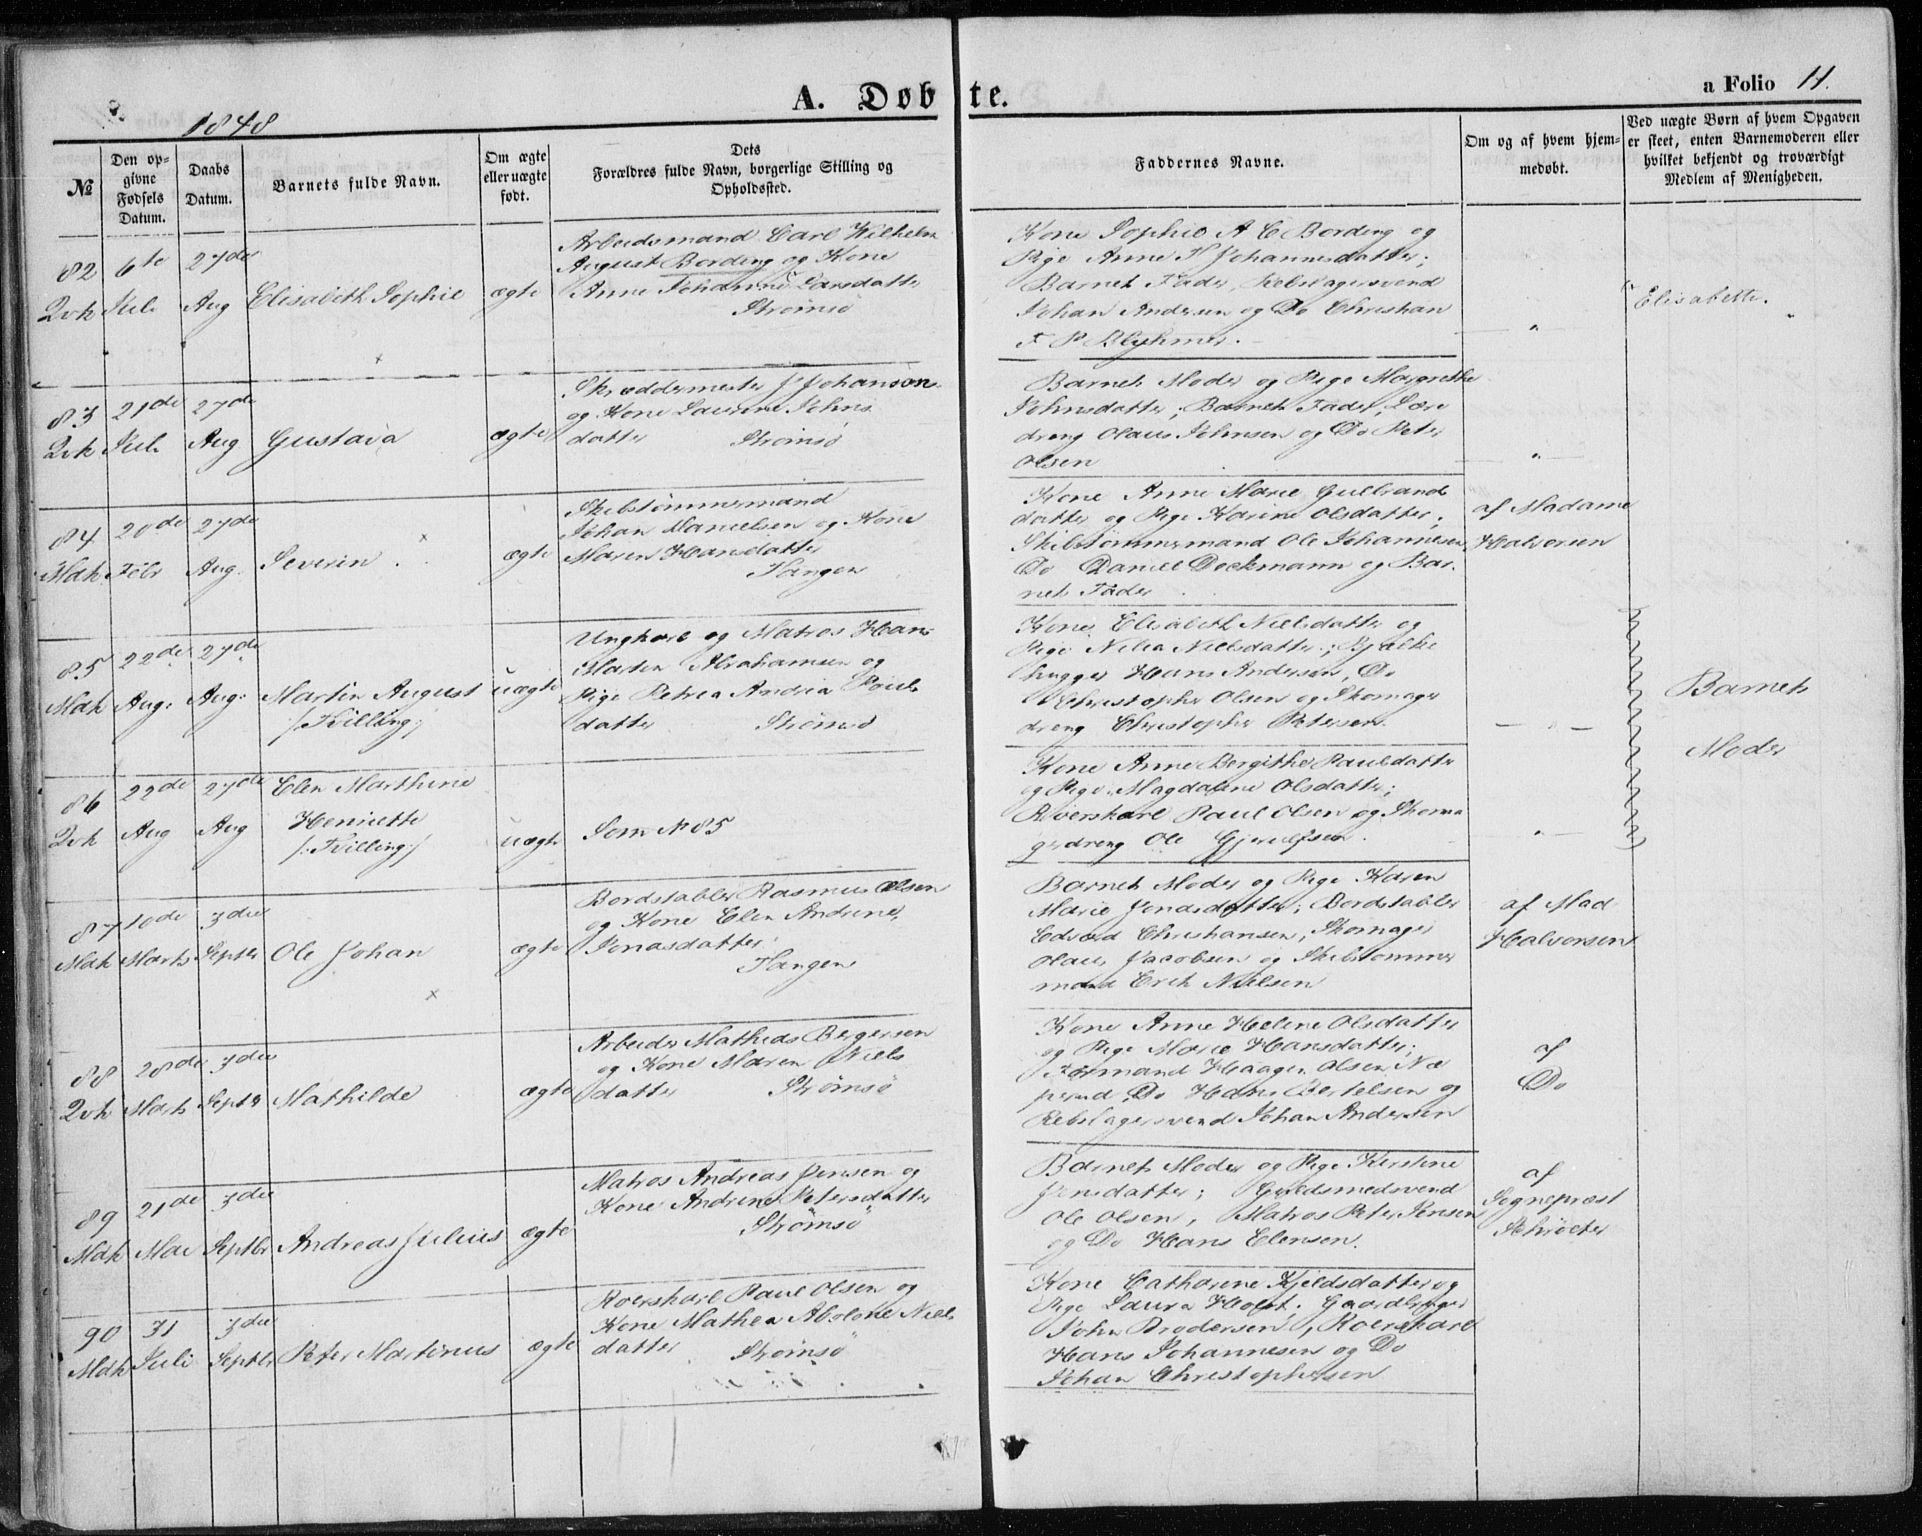 A. Døbte.
a Folio 11.
1848
№
Den opgivne Fødsels Datum.
Daabs Datum.
Barnets fulde Navn.
Om ægte eller uægte født.
Dets Forældres fulde Navn, borgerlige Stilling og Opholdssted.
Faddernes Navne.
Om og af hvem hjemmedøbt.
Ved uægte Børn af hvem Opgaven er skeet, enten Barnemoderen eller hvilket bekjendt og troværdigt Medlem af Menigheden.
82
Qvk
6te
Juli
27de
Aug
Elisabeth Sophie
ægte
Arbeidsmand Carl Wilhelm
August Bording og Kone
Anne Johanne Larsdatter
Strømsø
Kone Sophie A C Bording og
Pige Anne H Johannesdatter;
Barnets Fader, Rebslagersvend
Johan Andersen og Do Christian
F P Blyhmer.
"
Elisabette.
83
Qvk
21de
Juli
27de
Aug
Gustava
ægte
Skræddermester J Johanson
og Kone Laurine Johns
datter Strømsø
Barnets Moder og Pige Margrethe
Johnsdatter; Barnets Fader, Lære
dreng Olaus Johnsen og Do Peter
Olsen
"
84
Mdk
20de
Febr
27de
Aug.
Severin
ægte
Skibstømmermand
Johan Danielsen og Kone
Maren Hansdatter
Tangen
Kone Anne Marie Gulbrands
datter og Pige Karine Olsdatter;
Skibstømmermand Ole Johannesen,
Do Daniel Dockmann og Bar
nets Fader
af Madame
Halvorsen
85
Mdk
22de
Aug.
27de
Aug.
Martin August
/:Tvilling:/
uægte
Ungkarl og Matros Hans
Martin Abrahamsen og
Pige Petrea Andrea Pouls
datter Strømsø
Kone Elisabeth Nielsdatter og
Pige Nilia Nielsdatter; Bjælke
hugger Hans Andersen, Do
Christopher Olsen og Skomager
dreng Christopher Petersen.
"
Barnets
Moder
86
Qvk
22de
Aug
27de
Aug
Elen Marthine
Henriette
/:Tvilling:/
uægte
Som № 85
Kone Anne Bergithe Paulsdatter
og Pige Magdalene Olsdatter;
Roerskarl Paul Olsen og Skoma
gerdreng Ole Gjerulfsen.
"
87
Mdk
10de
Marts
3die
Septbr
Ole Johan
ægte
Bordstabler Rasmus Olsen
og Kone Elen Andrine
Jonasdatter
Tangen
Barnets Moder og Pige Karen
Marie Jonasdatter; Bordstabler
Edvard Christiansen, Skomager
Olaus Jacobsen og Skibstømmer
mand Erik Nielsen
af Mad
Halvorsen
88
Qvk
28de
Marts
3die
Septbr
Mathilde
ægte
Arbeider Mathias Bergersen
og Kone Maren Niels
datter Strømsø
Kone Anne Helene Olsdatter
og Pige Marie Hansdatter;
Formand Haagen Olsen Næ
perud, Do Hans Bertelsen og
Rebslagersvend Johan Andersen
af
Do
89
Mdk
21de
Mai
3die
Septbr
Andreas Julius
ægte
Matros Andreas Jensen og
Kone Andrine Petersdatter
Strømsø
Barnets Moder og Pige Kerstine
Jensdatter; Guldsmedsvend
Ole Olsen, Matros Peter Jensen
og Do Hans Elensen.
af
Sognepræst
Schröeter
90
Mdk
31
Juli
3die
Septbr
Peter Martinus
ægte
Roerskarl Paul Olsen og
Kone Mathea Abolone Niels
datter Strømsø
Kone Catharine Kjeldsdatter og
Pige Laura Holst; Gaardbruger
John Brodersen, Roerskarl
Hans Johannesen og Do
Johan Christophersen